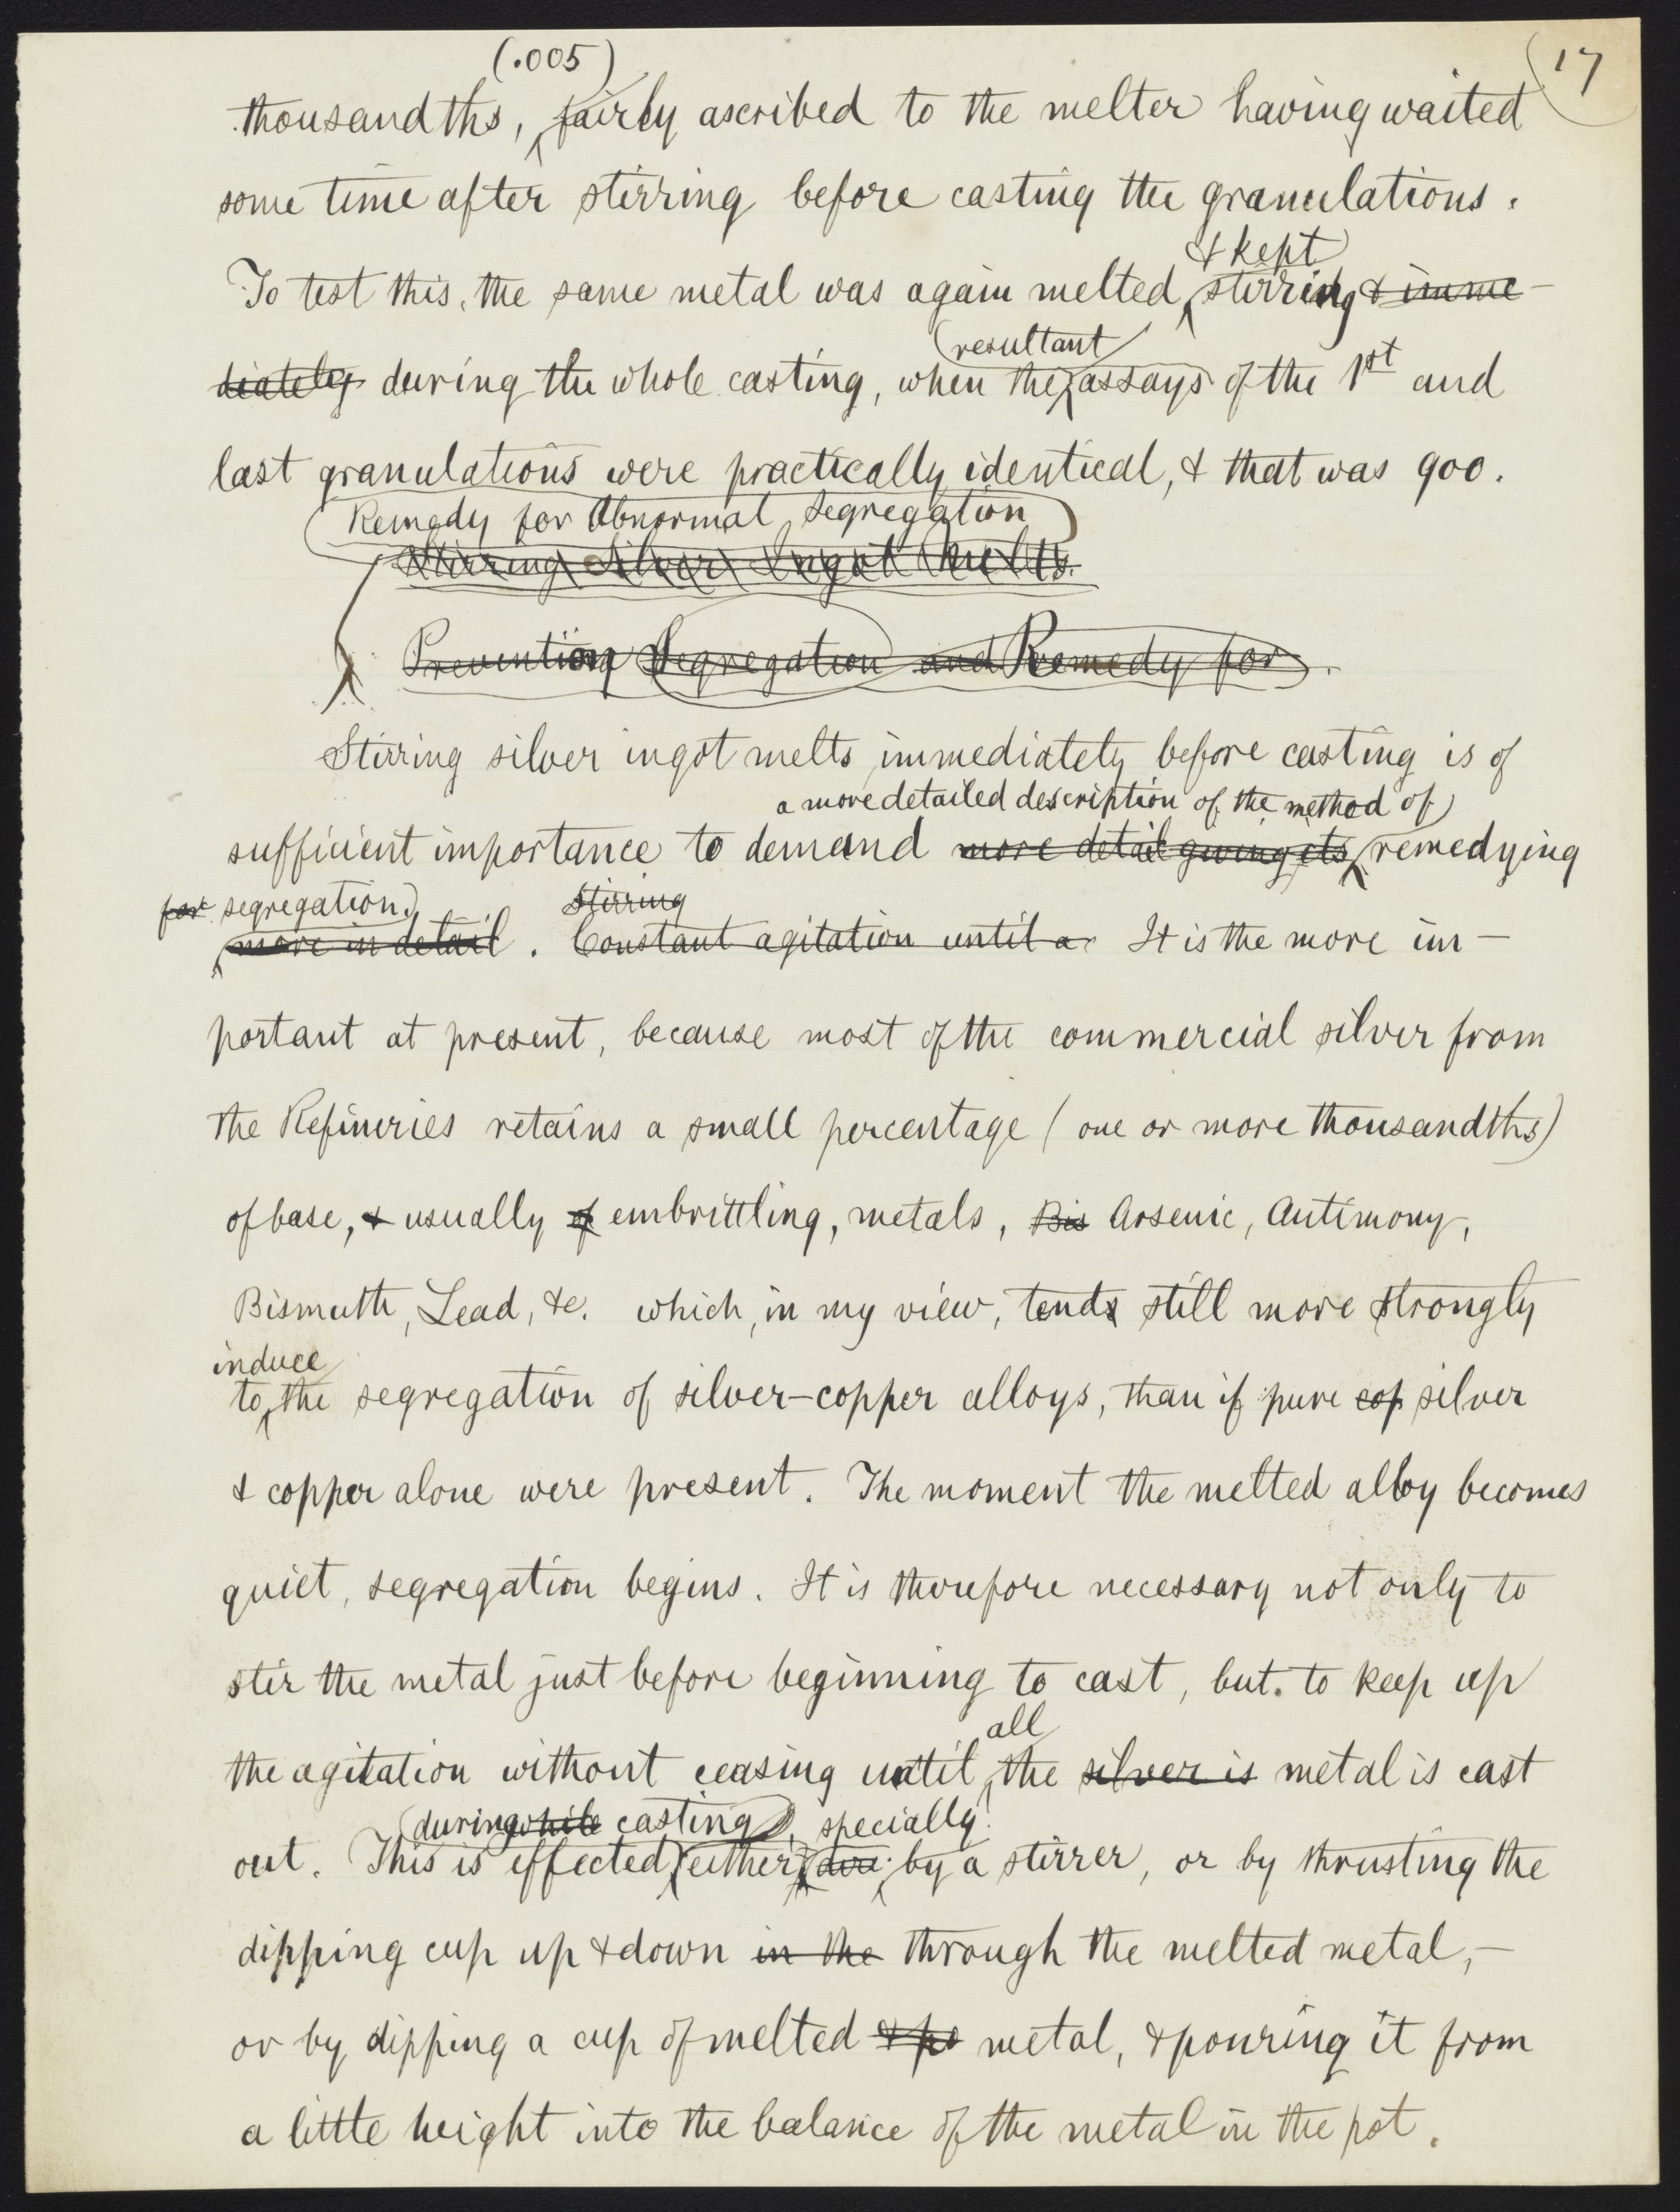 17
(.005)
thousandths, fairly ascribed to the melter having waited
some time after stirring before casting the granulations.
& kept
To test this, the same metal was again melted, stirring & imme-
resultant
diately during the whole casting, when the assays of the 1st and
last granulations were practically identical, & that was 900.
Remedy for Abnormal Segregation
Stirring Silver Ingot Melts.
Preventing Segregation and Remedy for.
Stirring silver ingot melts immediately before casting is of
a more detailed description of the method of
sufficient importance to demand more detail giving its remedying
for segregation. Stirring
more in detail. Constant agitation until a It is the more im-
portant at present, because most of the commercial silver from
the Refineries retains a small percentage (one or more thousandths)
of base, & usually of embrittling, metals, Bis Arsenic, Antimony,
Bismuth, Lead, &c. which, in my view, tends still more strongly
induce
to the segregation of silver-copper alloys, than if pure cop silver
& copper alone were present. The moment the melted alloy becomes
quiet, segregation begins. It is therefore necessary not only to
stir the metal just before beginning to cast, but to keep up
all
the agitation without ceasing until the silver is metal is cast
during while casting, specially
out. This is effected either by a stirrer, or by thrusting the
dipping cup up & down in the through the melted metal,-
or by dipping a cup of melted & po metal, & pouring it from
a little height into the balance of the metal in the pot.